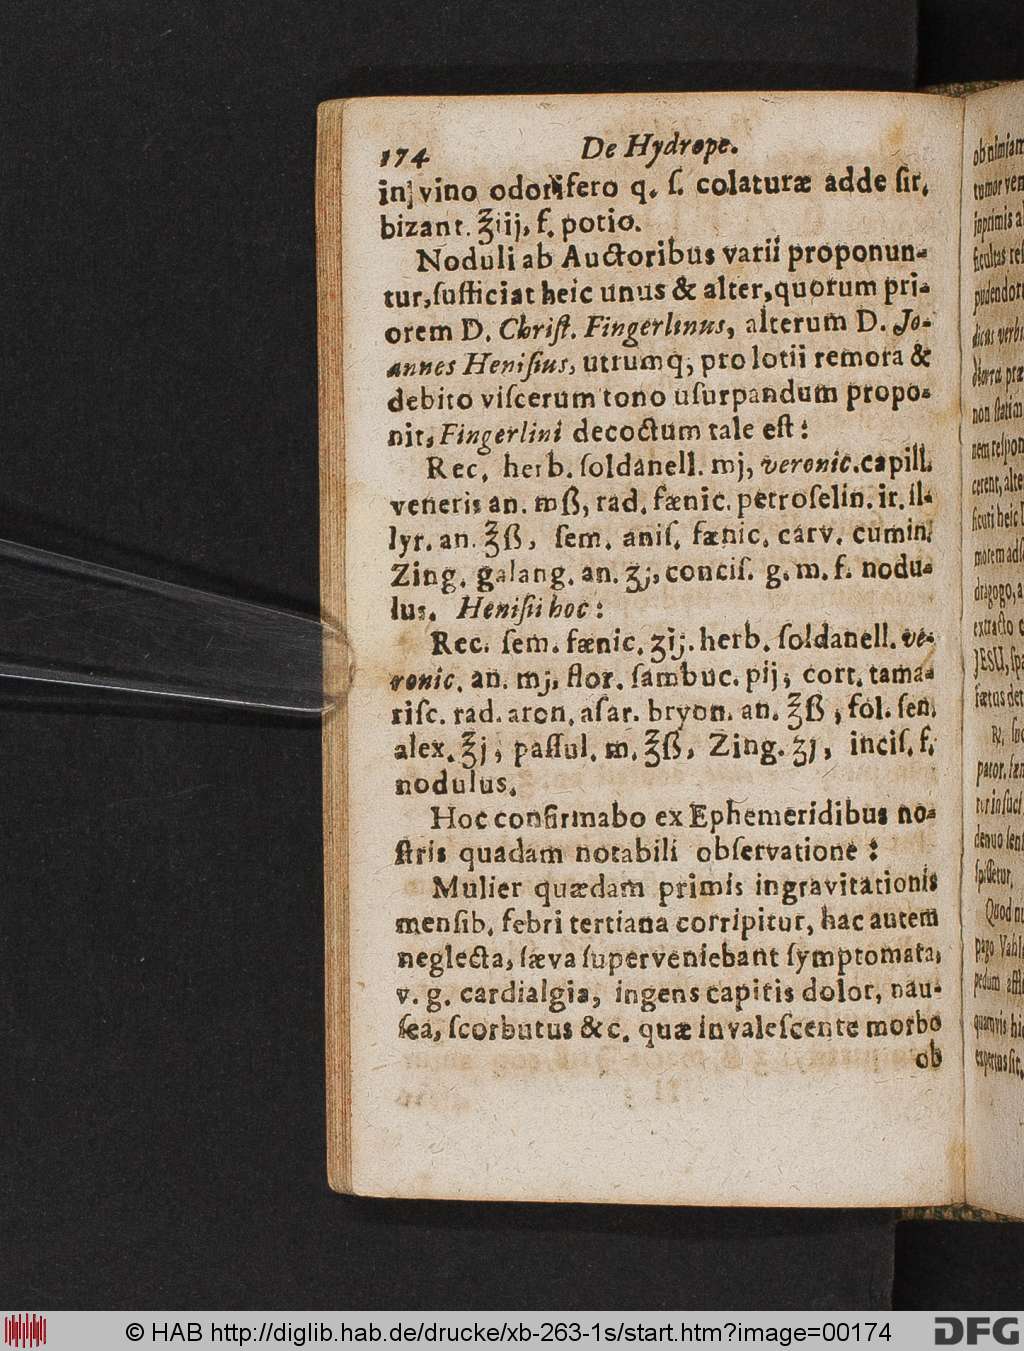 174 De Hydrope.
in vino odorifero q. ſ. colaturæ adde ſir.
bizant. ℥iij, f. potio.
Noduli ab Auctoribus varii proponun-
tur, ſufficiat heic unus & alter, quorum pri-
orem D. Chriſt. Fingerlinus, alterum D. Jo-
annes Heniſius, utrumq; pro lotii remora &
debito viſcerum tono uſurpandum propo-
nit, Fingerlini decoctum tale eſt:
Rec. herb. ſoldanell. mj, veronic. capill.
veneris an. mß, rad. fænic. petroſelin. ir. il-
lyr. an. ℥ß, ſem. aniſ. fænic. carv. cumin.
Zing. galang. an. ʒj, conciſ. g. m. f. nodu-
lus. Heniſii hoc:
Rec. ſem. fænic. ʒij. herb. ſoldanell. ve-
ronic. an. mj, flor. ſambuc. pij, cort. tama-
riſc. rad. aron. aſar. bryon. an. ℥ß, fol. ſen.
alex. ℥j, paſſul. m. ℥ß, Zing. ʒj, inciſ. f.
nodulus.
Hoc confirmabo ex Ephemeridibus no-
ſtris quadam notabili obſervatione:
Mulier quædam primis ingravitationis
menſib. febri tertiana corripitur, hac autem
neglecta, ſæva ſuperveniebant ſymptomata,
v. g. cardialgia, ingens capitis dolor, nau-
ſea, ſcorbutus &c. quæ invaleſcente morbo
ob
© HAB http://diglib.hab.de/drucke/xb-263-1s/start.htm?image=00174
DFG